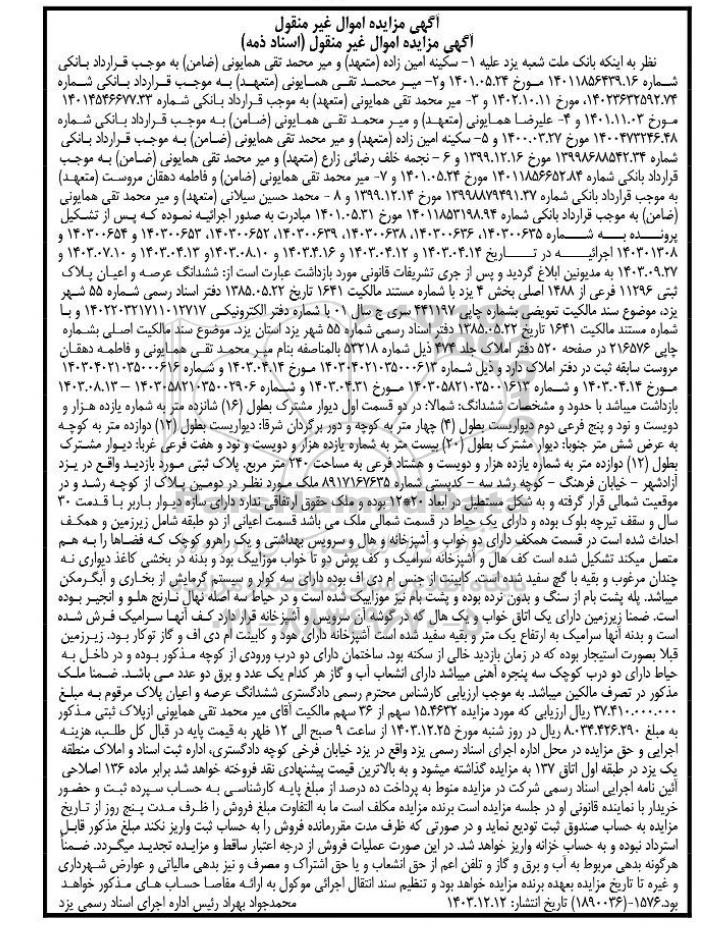 آگهی مزایده اموال غیر منقول
آگهی مزایده اموال غیر منقول (اسناد ذمه)
نظر به اینکه بانک ملت شعبه یزد علیه ۱- سکینه امین زاده (متعهد) و میر محمد تقی همایونی (ضامن) به موجب قرارداد بانکی
شماره ۱۴۰۱۱۸۵۶۴۳۹.۱۶ مورخ ۱۴۰۱.۰۵.۲۴ و۲- میر محمد تقی همایونی (متعهد) به موجب قرارداد بانکی شماره
۱۴۰۲۳۶۳۲۵۹۲.۷۴، مورخ ۱۴۰۲.۱۰.۱۱ و ۳- میر محمد تقی همایونی (متعهد) به موجب قرارداد بانکی شماره ۱۴۰۱۴۵۴۶۶۷۷.۳۳
مورخ ۱۴۰۱.۱۱.۰۳ و ۴- علیرضا همایونی (متعهد) و میر محمد تقی همایونی (ضامن) به موجب قرارداد بانکی شماره
۱۴۰۰۴۷۳۲۴۶.۴۸ مورخ ۱۴۰۰.۰۳.۲۷ و ۵- سکینه امین زاده (متعهد) و میر محمد تقی همایونی (ضامن) به موجب قرارداد بانکی
شماره ۱۳۹۹۸۶۸۸۵۴۲.۳۴ مورخ ۱۳۹۹.۱۲.۱۶ و ۶ - نجمه خلف رضائی زارع (متعهد) و میر محمد تقی همایونی (ضامن) به موجب
قرارداد بانکی شماره ۱۴۰۱۱۸۵۶۶۵۲.۸۴ مورخ ۱۴۰۱.۰۵.۲۴ و ۷- میر محمد تقی همایونی (ضامن) و فاطمه دهقان مروست (متعهد)
به موجب قرارداد بانکی شماره ۱۳۹۹۸۸۷۹۴۹۱.۳۷ مورخ ۱۳۹۹.۱۲.۱۴ و ۸ - محمد حسین سیلانی (متعهد) و میر محمد تقی همایونی
(ضامن) به موجب قرارداد بانکی شماره ۱۴۰۱۱۸۵۳۱۹۸.۹۴ مورخ ۱۴۰۱.۰۵.۳۱ مبادرت به صدور اجرائیه نموده که پس از تشکیل
پرونده به شماره ۱۴۰۳۰۰۶۳۵، ۱۴۰۳۰۰۶۳۶، ۱۴۰۳۰۰۶۳۸، ۱۴۰۳۰۰۶۳۹، ۱۴۰۳۰۰۶۵۲، ۱۴۰۳۰۰۶۵۳ و ۱۴۰۳۰۰۶۵۴ و
۱۴۰۳۰۱۳۰۸ اجرائیه در تاریخ ۱۴۰۳.۰۴.۱۴ و ۱۴۰۳.۰۴.۱۲ و ۱۴۰۳.۴.۱۶ و ۱۴۰۳.۰۸.۱۰و ۱۴۰۳.۰۴.۱۳ و ۱۴۰۳.۰۷.۱۰ و
۱۴۰۳.۰۹.۲۷ به مدیونین ابلاغ گردید و پس از جری تشریفات قانونی مورد بازداشت عبارت است از: ششدانگ عرصه و اعیان پلاک
ثبتی ۱۱۲۹۶ فرعی از ۱۴۸۸ اصلی بخش ۴ یزد با شماره مستند مالکیت ۱۶۴۱ تاریخ ۱۳۸۵.۰۵.۲۲ دفتر اسناد رسمی شماره ۵۵ شهر
یزد، موضوع سند مالکیت تعویضی بشماره چاپی ۴۴۱۱۹۷ سری ج سال ۰۱ با شماره دفتر الکترونیکی ۱۴۰۲۲۰۳۲۱۷۱۱۰۱۲۷۱۷ و با
شماره مستند مالکیت ۱۶۴۱ تاریخ ۱۳۸۵.۰۵.۲۲ دفتر اسناد رسمی شماره ۵۵ شهر یزد استان یزد، موضوع سند مالکیت اصلی بشماره
چاپی ۲۱۶۵۷۶ در صفحه ۵۲۰ دفتر املاک جلد ۴۷۴ ذیل شماره ۵۳۲۱۸ بالمناصفه بنام میر محمد تقی همایونی و فاطمه دهقان
مروست سابقه ثبت در دفتر املاک دارد و ذیل شماره ۱۴۰۳۰۴۰۲۱۰۳۵۰۰۰۶۱۳ مورخ ۱۴۰۳.۰۴.۱۴ و شماره ۱۴۰۳۰۴۰۲۱۰۳۵۰۰۰۶۱۶
مورخ ۱۴۰۳.۰۴.۱۴ و شماره ۱۴۰۳۰۵۸۲۱۰۳۵۰۰۱۶۱۳ مورخ ۱۴۰۳.۰۴.۳۱ و شماره ۱۴۰۳۰۵۸۲۱۰۳۵۰۰۲۹۰۶ – ۱۴۰۳.۰۸.۱۳
بازداشت میباشد با حدود و مشخصات ششدانگ: شمالا: در دو قسمت اول دیوار مشترک بطول (۱۶) شانزده متر به شماره یازده هزار و
دویست و نود و پنج فرعی دوم دیواریست بطول (۴) چهار متر به کوچه و دور برگردان شرقا: دیواریست بطول (۱۲) دوازده متر به کوچه
به عرض شش متر جنوبا: دیوار مشترک بطول (۲۰) بیست متر به شماره یازده هزار و دویست و نود و هفت فرعی غربا: دیوار مشترک
بطول (۱۲) دوازده متر به شماره یازده هزار و دویست و هشتاد فرعی به مساحت ۲۴۰ متر مربع. پلاک ثبتی مورد بازدید واقع در یزد
آزادشهر - خیابان فرهنگ - کوچه رشد سه - کدپستی شماره ۸۹۱۷۱۶۷۶۳۵ ملک مورد نظر در دومین پلاک از کوچه رشد و در
موقعیت شمالی قرار گرفته و به شکل مستطیل در ابعاد ۲۰*۱۲ بوده و ملک حقوق ارتفاقی ندارد دارای سازه دیوار باربر با قدمت ۳۰
سال و سقف تیرچه بلوک بوده و دارای یک حیاط در قسمت شمالی ملک می باشد قسمت اعیانی از دو طبقه شامل زیرزمین و همکف
احداث شده است در قسمت همکف دارای دو خواب و آشپزخانه و هال و سرویس بهداشتی و یک راهرو کوچک که فضاها را به هم
متصل میکند تشکیل شده است کف هال و آشپزخانه سرامیک و کف پوش دو تا خواب موزاییک بود و بدنه در بخشی کاغذ دیواری نه
چندان مرغوب و بقیه با گچ سفید شده است. کابینت از جنس ام دی اف بوده دارای سه کولر و سیستم گرمایش از بخاری و آبگرمکن
میباشد. پله پشت بام از سنگ و بدون نرده بوده و پشت بام نیز موزاییک شده است و در حیاط سه اصله نهال نارنج هلو و انجیر بوده
است. ضمنا زیرزمین دارای یک اتاق خواب و یک هال که در گوشه آن سرویس و آشپزخانه قرار دارد کف آنها سرامیک فرش شده
است و بدنه آنها سرامیک به ارتفاع یک متر و بقیه سفید شده است آشپزخانه دارای هود و کابینت ام دی اف و گاز توکار بود. زیرزمین
قبلا بصورت استیجار بوده که در زمان بازدید خالی از سکنه بود. ساختمان دارای دو درب ورودی از کوچه مذکور بوده و در داخل به
حیاط دارای دو درب کوچک سه پنجره آهنی میباشد دارای انشعاب آب و گاز هر کدام یک عدد و برق دو عدد می باشد. ضمنا ملک
مذکور در تصرف مالکین میباشد. به موجب ارزیابی کارشناس محترم رسمی دادگستری ششدانگ عرصه و اعیان پلاک مرقوم به مبلغ
۳۷.۴۱۰.۰۰۰.۰۰۰ ریال ارزیابی که مورد مزایده ۱۵.۴۶۳۲ سهم از ۳۶ سهم مالکیت آقای میر محمد تقی همایونی ازپلاک ثبتی مذکور
به مبلغ ۸.۰۳۴.۴۲۶.۲۹۰ ریال در روز شنبه مورخ ۱۴۰۳.۱۲.۲۵ از ساعت ۹ صبح الی ۱۲ ظهر به قیمت پایه در قبال کل طلب، هزینه
اجرایی و حق مزایده در محل اداره اجرای اسناد رسمی یزد واقع در یزد خیابان فرخی کوچه دادگستری، اداره ثبت اسناد و املاک منطقه
یک یزد در طبقه اول اتاق ۱۳۷ به مزایده گذاشته میشود و به بالاترین قیمت پیشنهادی نقد فروخته خواهد شد برابر ماده ۱۳۶ اصلاحی
آئین نامه اجرایی اسناد رسمی شرکت در مزایده منوط به پرداخت ده درصد از مبلغ پایه کارشناسی به حساب سپرده ثبت و حضور
خریدار با نماینده قانونی او در جلسه مزایده است برنده مزایده مکلف است ما به التفاوت مبلغ فروش را ظرف مدت پنج روز از تاریخ
مزایده به حساب صندوق ثبت تودیع نماید و در صورتی که ظرف مدت مقررمانده فروش را به حساب ثبت واریز نکند مبلغ مذکور قابل
استرداد نبوده و به حساب خزانه واریز خواهد شد. در این صورت عملیات فروش از درجه اعتبار ساقط و مزایده تجدید میگردد. ضمناً
هرگونه بدهی مربوط به آب و برق و گاز و تلفن اعم از حق انشعاب و یا حق اشتراک و مصرف و نیز بدهی مالیاتی و عوارض شهرداری
و غیره تا تاریخ مزایده بعهده برنده مزایده خواهد بود و تنظیم سند انتقال اجرائی موکول به ارائه مفاصا حساب های مذکور خواهد
بود.۱۵۷۶-(۱۸۹۰۰۳۶) تاریخ انتشار: ۱۴۰۳.۱۲.۱۲ محمدجواد بهراد رئیس اداره اجرای اسناد رسمی یزد